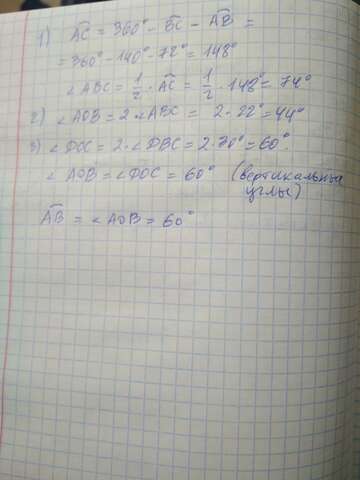 1) AC = 360° - BC - AB =
= 360° - 140° - 72° = 148°
∠ABC = 1/2 · AC = 1/2 · 148° = 74°
2) ∠AOB = 2 · ∠ABC = 2 · 22° = 44°
3) ∠DOC = 2 · ∠DBC = 2 · 30° = 60°.
∠AOB = ∠DOC = 60° (вертикальные
углы)
AB = ∠AOB = 60°